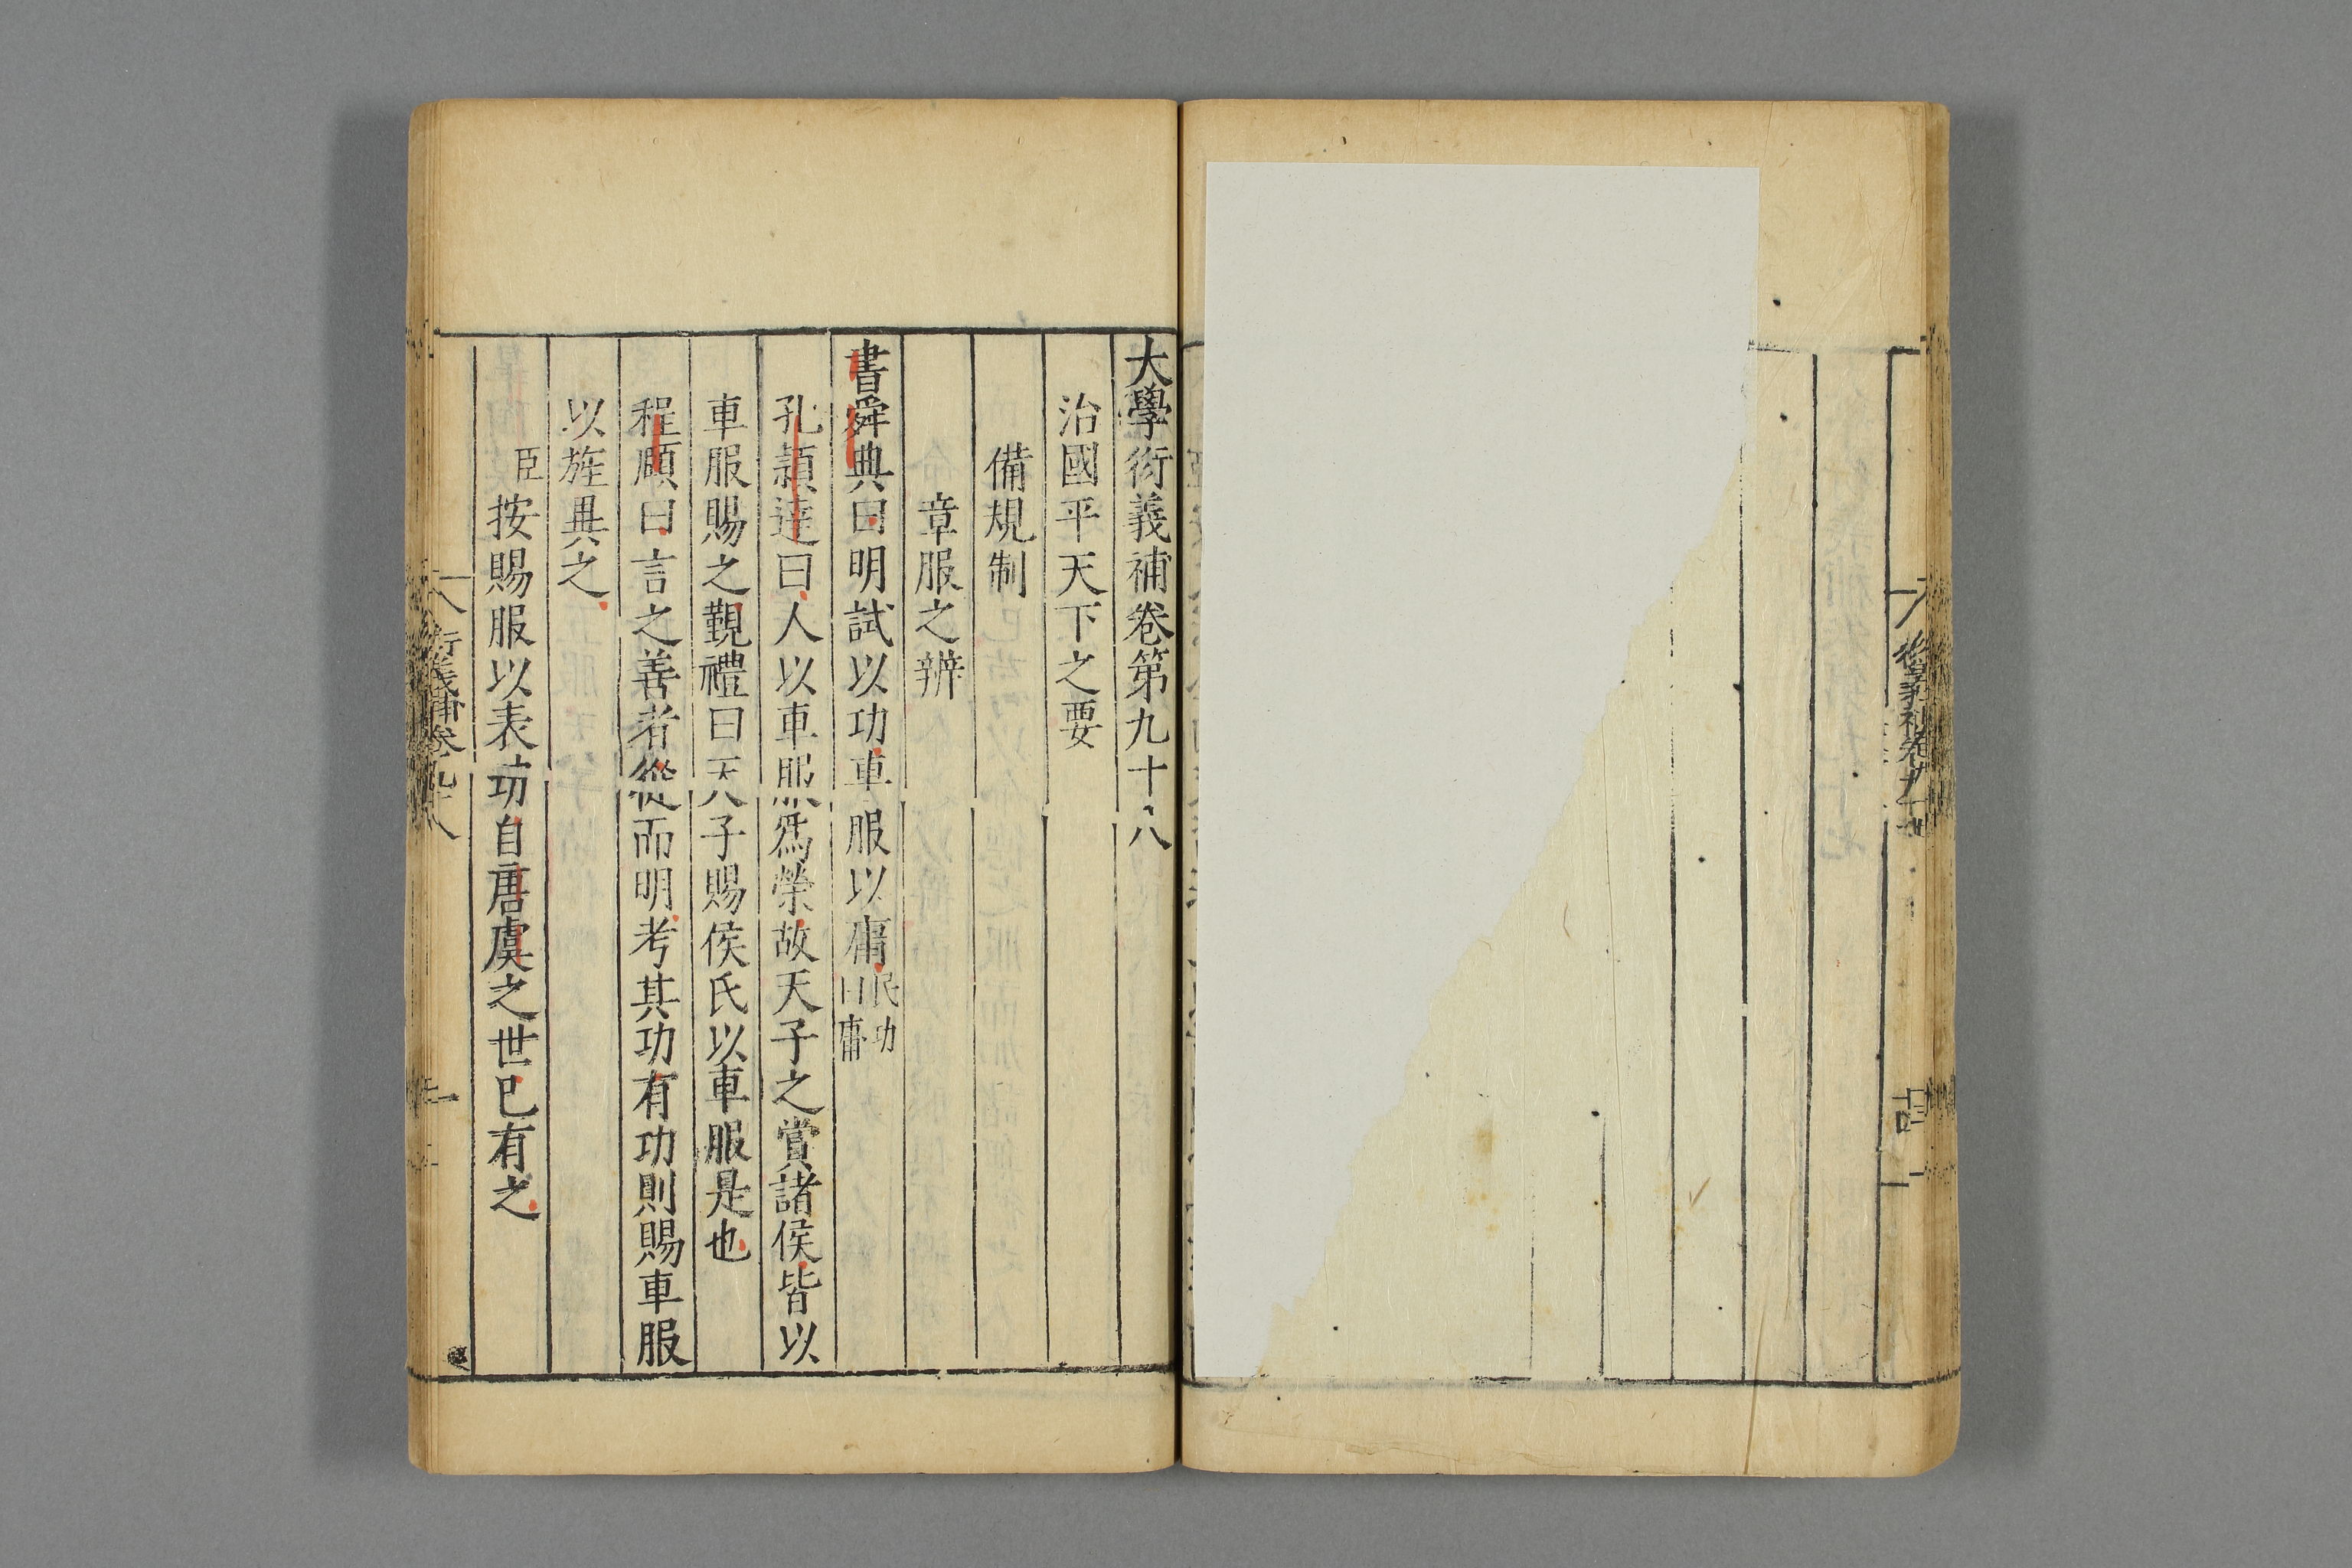 大學衍義補卷第九十八
治國平天下之要
備規制
章服之辨
書舜典曰明試以功車服以庸民功曰庸
孔頴達曰人以車服爲榮故天子之賞諸侯皆以
車服賜之覲禮曰天子賜侯氏以車服是也
程頤曰言之善者從而明考其功有功則賜車服
以旌異之
臣按賜服以表功自唐虞之世已有之
衍義補卷九十八